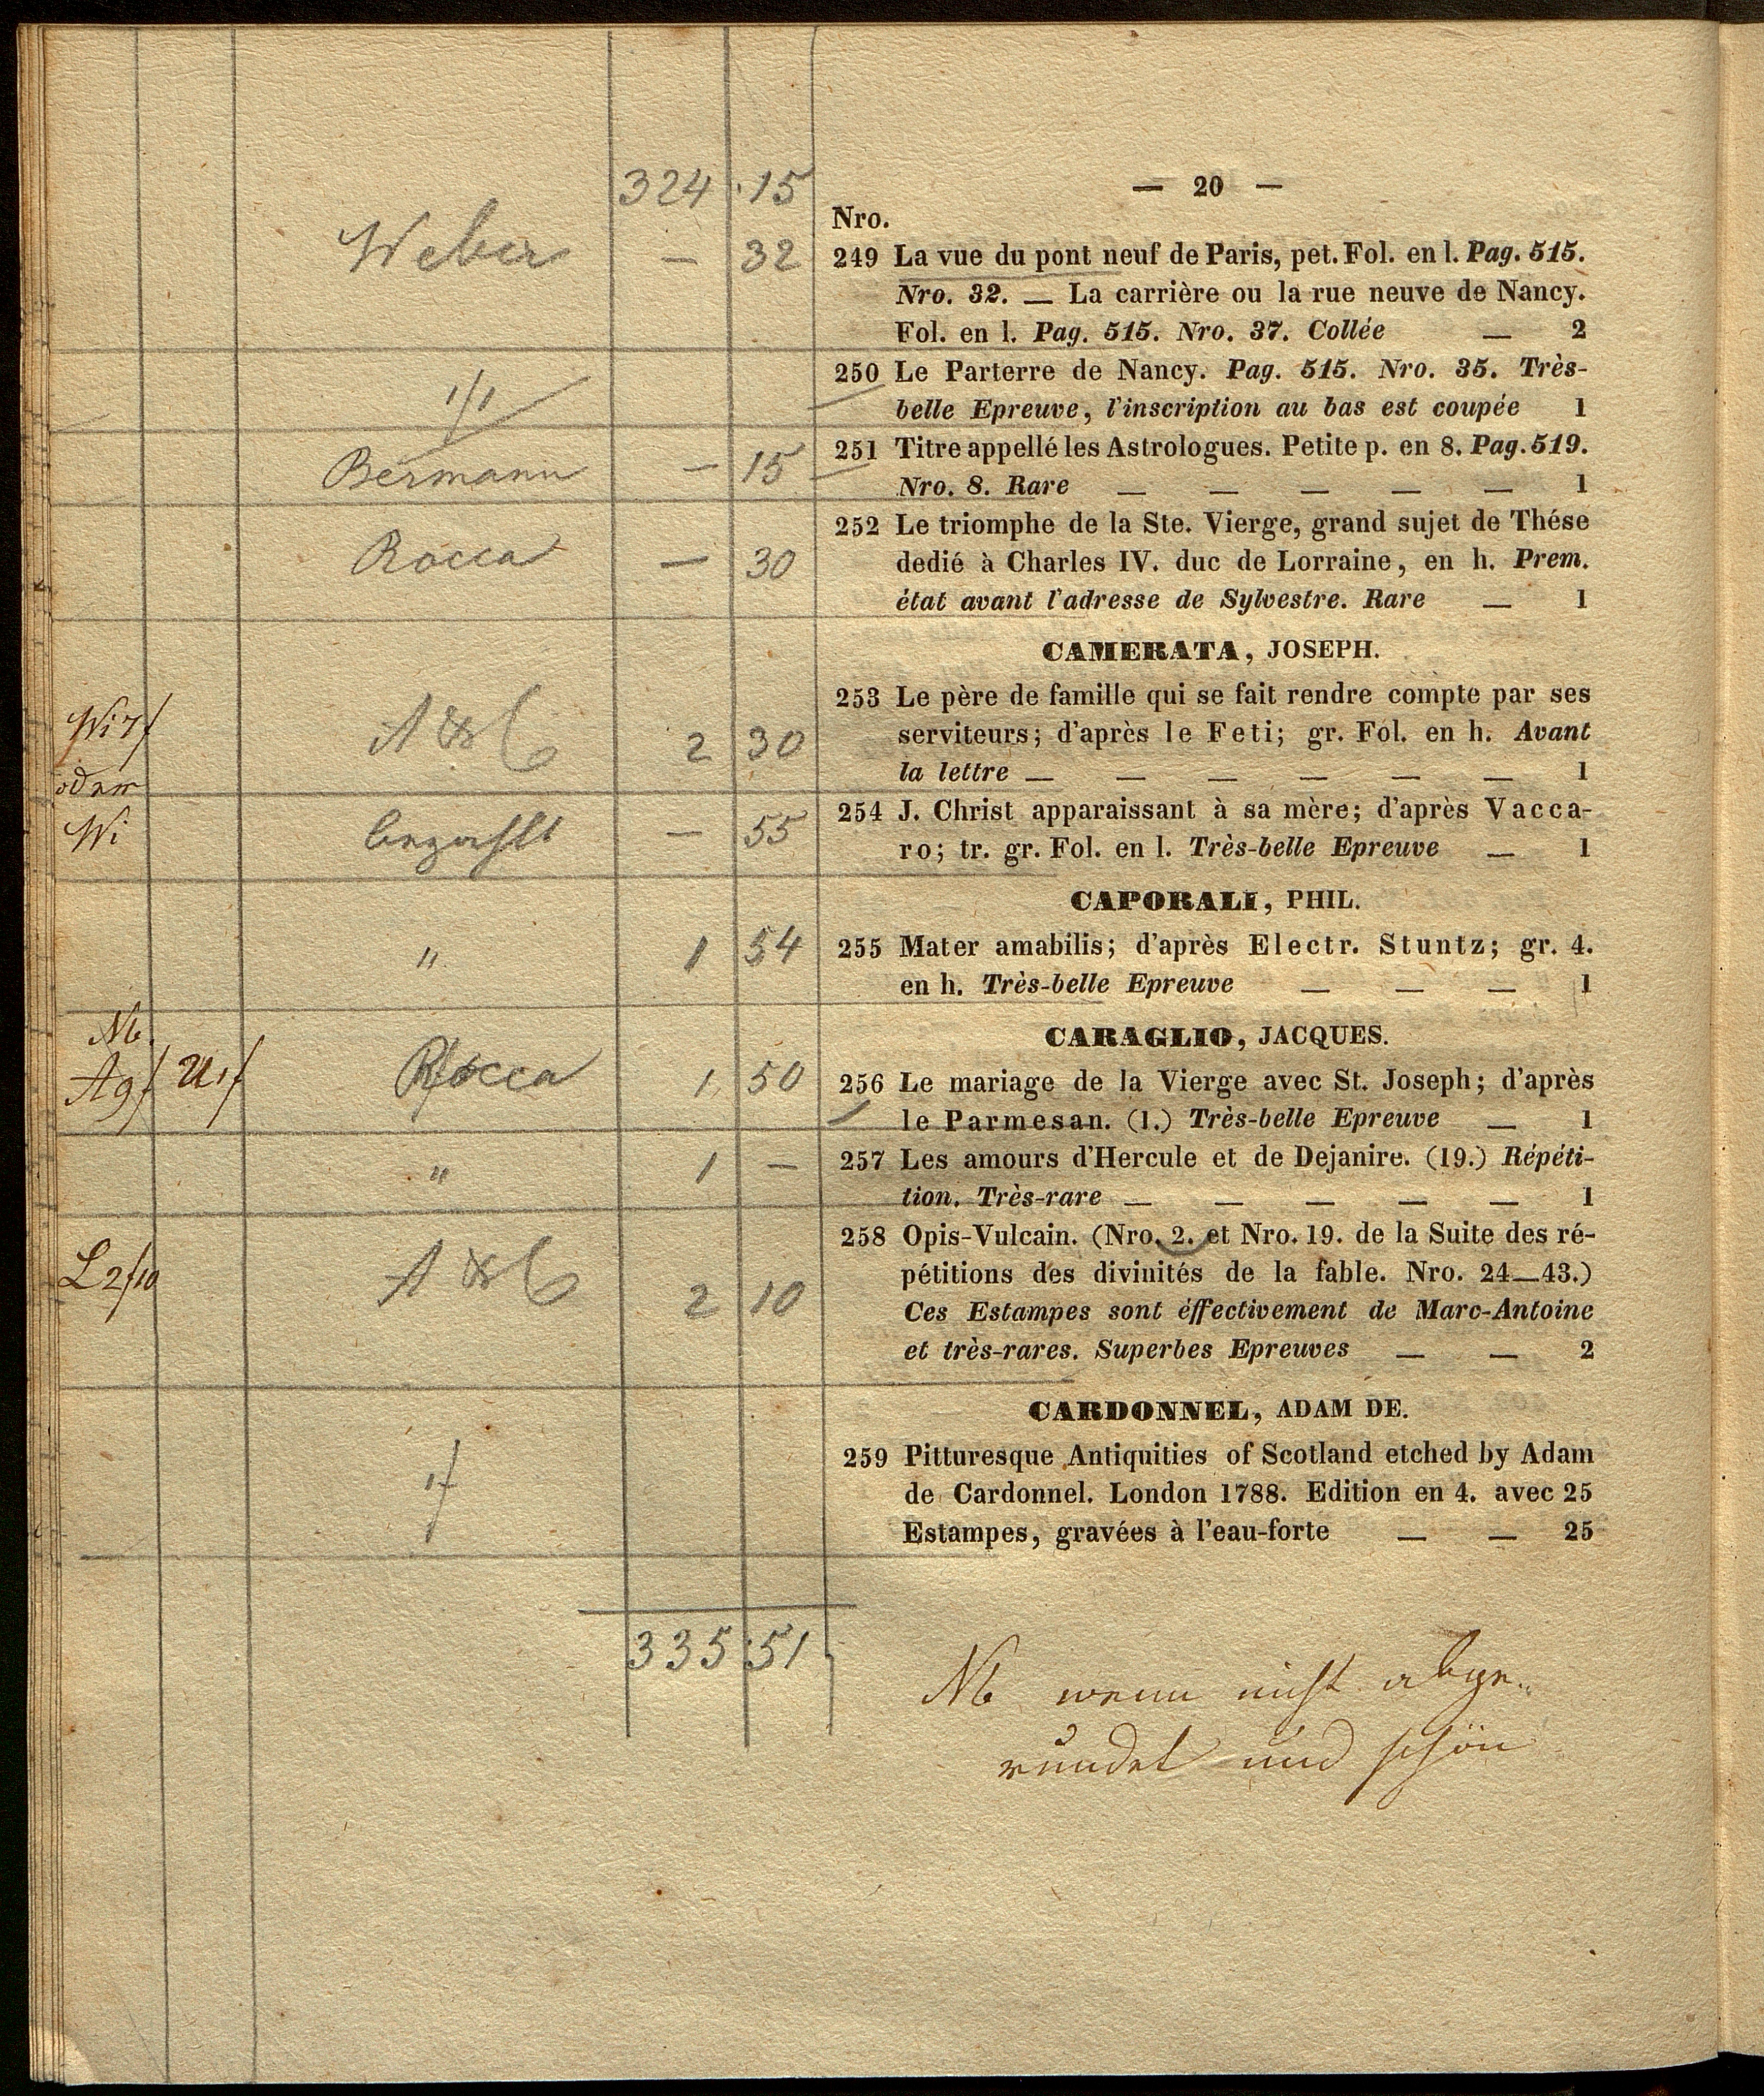 324 . 15
— 20 —
Nro.
Weber — 32
249 La vue du pont neuf de Paris, pet. Fol. en l. Pag. 515.
Nro. 32. — La carrière ou la rue neuve de Nancy.
Fol. en l. Pag. 515. Nro. 37. Collée — 2
250 Le Parterre de Nancy. Pag. 515. Nro. 35. Très-
belle Epreuve, l'inscription au bas est coupée 1
Bermann — 15
251 Titre appellé les Astrologues. Petite p. en 8. Pag. 519.
Nro. 8. Rare — — — — — 1
Rocca — 30
252 Le triomphe de la Ste. Vierge, grand sujet de Thése
dedié à Charles IV. duc de Lorraine, en h. Prem.
état avant l'adresse de Sylvestre. Rare — 1
CAMERATA, JOSEPH.
A & C 2 30
253 Le père de famille qui se fait rendre compte par ses
serviteurs; d'après le Feti; gr. Fol. en h. Avant
la lettre — — — — — — 1
Wi — 55
254 J. Christ apparaissant à sa mère; d'après Vacca-
ro; tr. gr. Fol. en l. Très-belle Epreuve — 1
CAPORALI, PHIL.
" 1 54
255 Mater amabilis; d'après Electr. Stuntz; gr. 4.
en h. Très-belle Epreuve — — — 1
CARAGLIO, JACQUES.
Nb.
Rocca 1 50
256 Le mariage de la Vierge avec St. Joseph; d'après
le Parmesan. (1.) Très-belle Epreuve — 1
" 1 —
257 Les amours d'Hercule et de Dejanire. (19.) Répéti-
tion. Très-rare — — — — — 1
L 2f10 A & C 2 10
258 Opis-Vulcain. (Nro. 2. et Nro. 19. de la Suite des ré-
pétitions des divinités de la fable. Nro. 24—43.)
Ces Estampes sont éffectivement de Marc-Antoine
et très-rares. Superbes Epreuves — — 2
CARDONNEL, ADAM DE.
259 Pitturesque Antiquities of Scotland etched by Adam
de Cardonnel. London 1788. Edition en 4. avec 25
Estampes, gravées à l'eau-forte — — 25
335 : 51
Nb wenn nicht abge-
rundet und schön